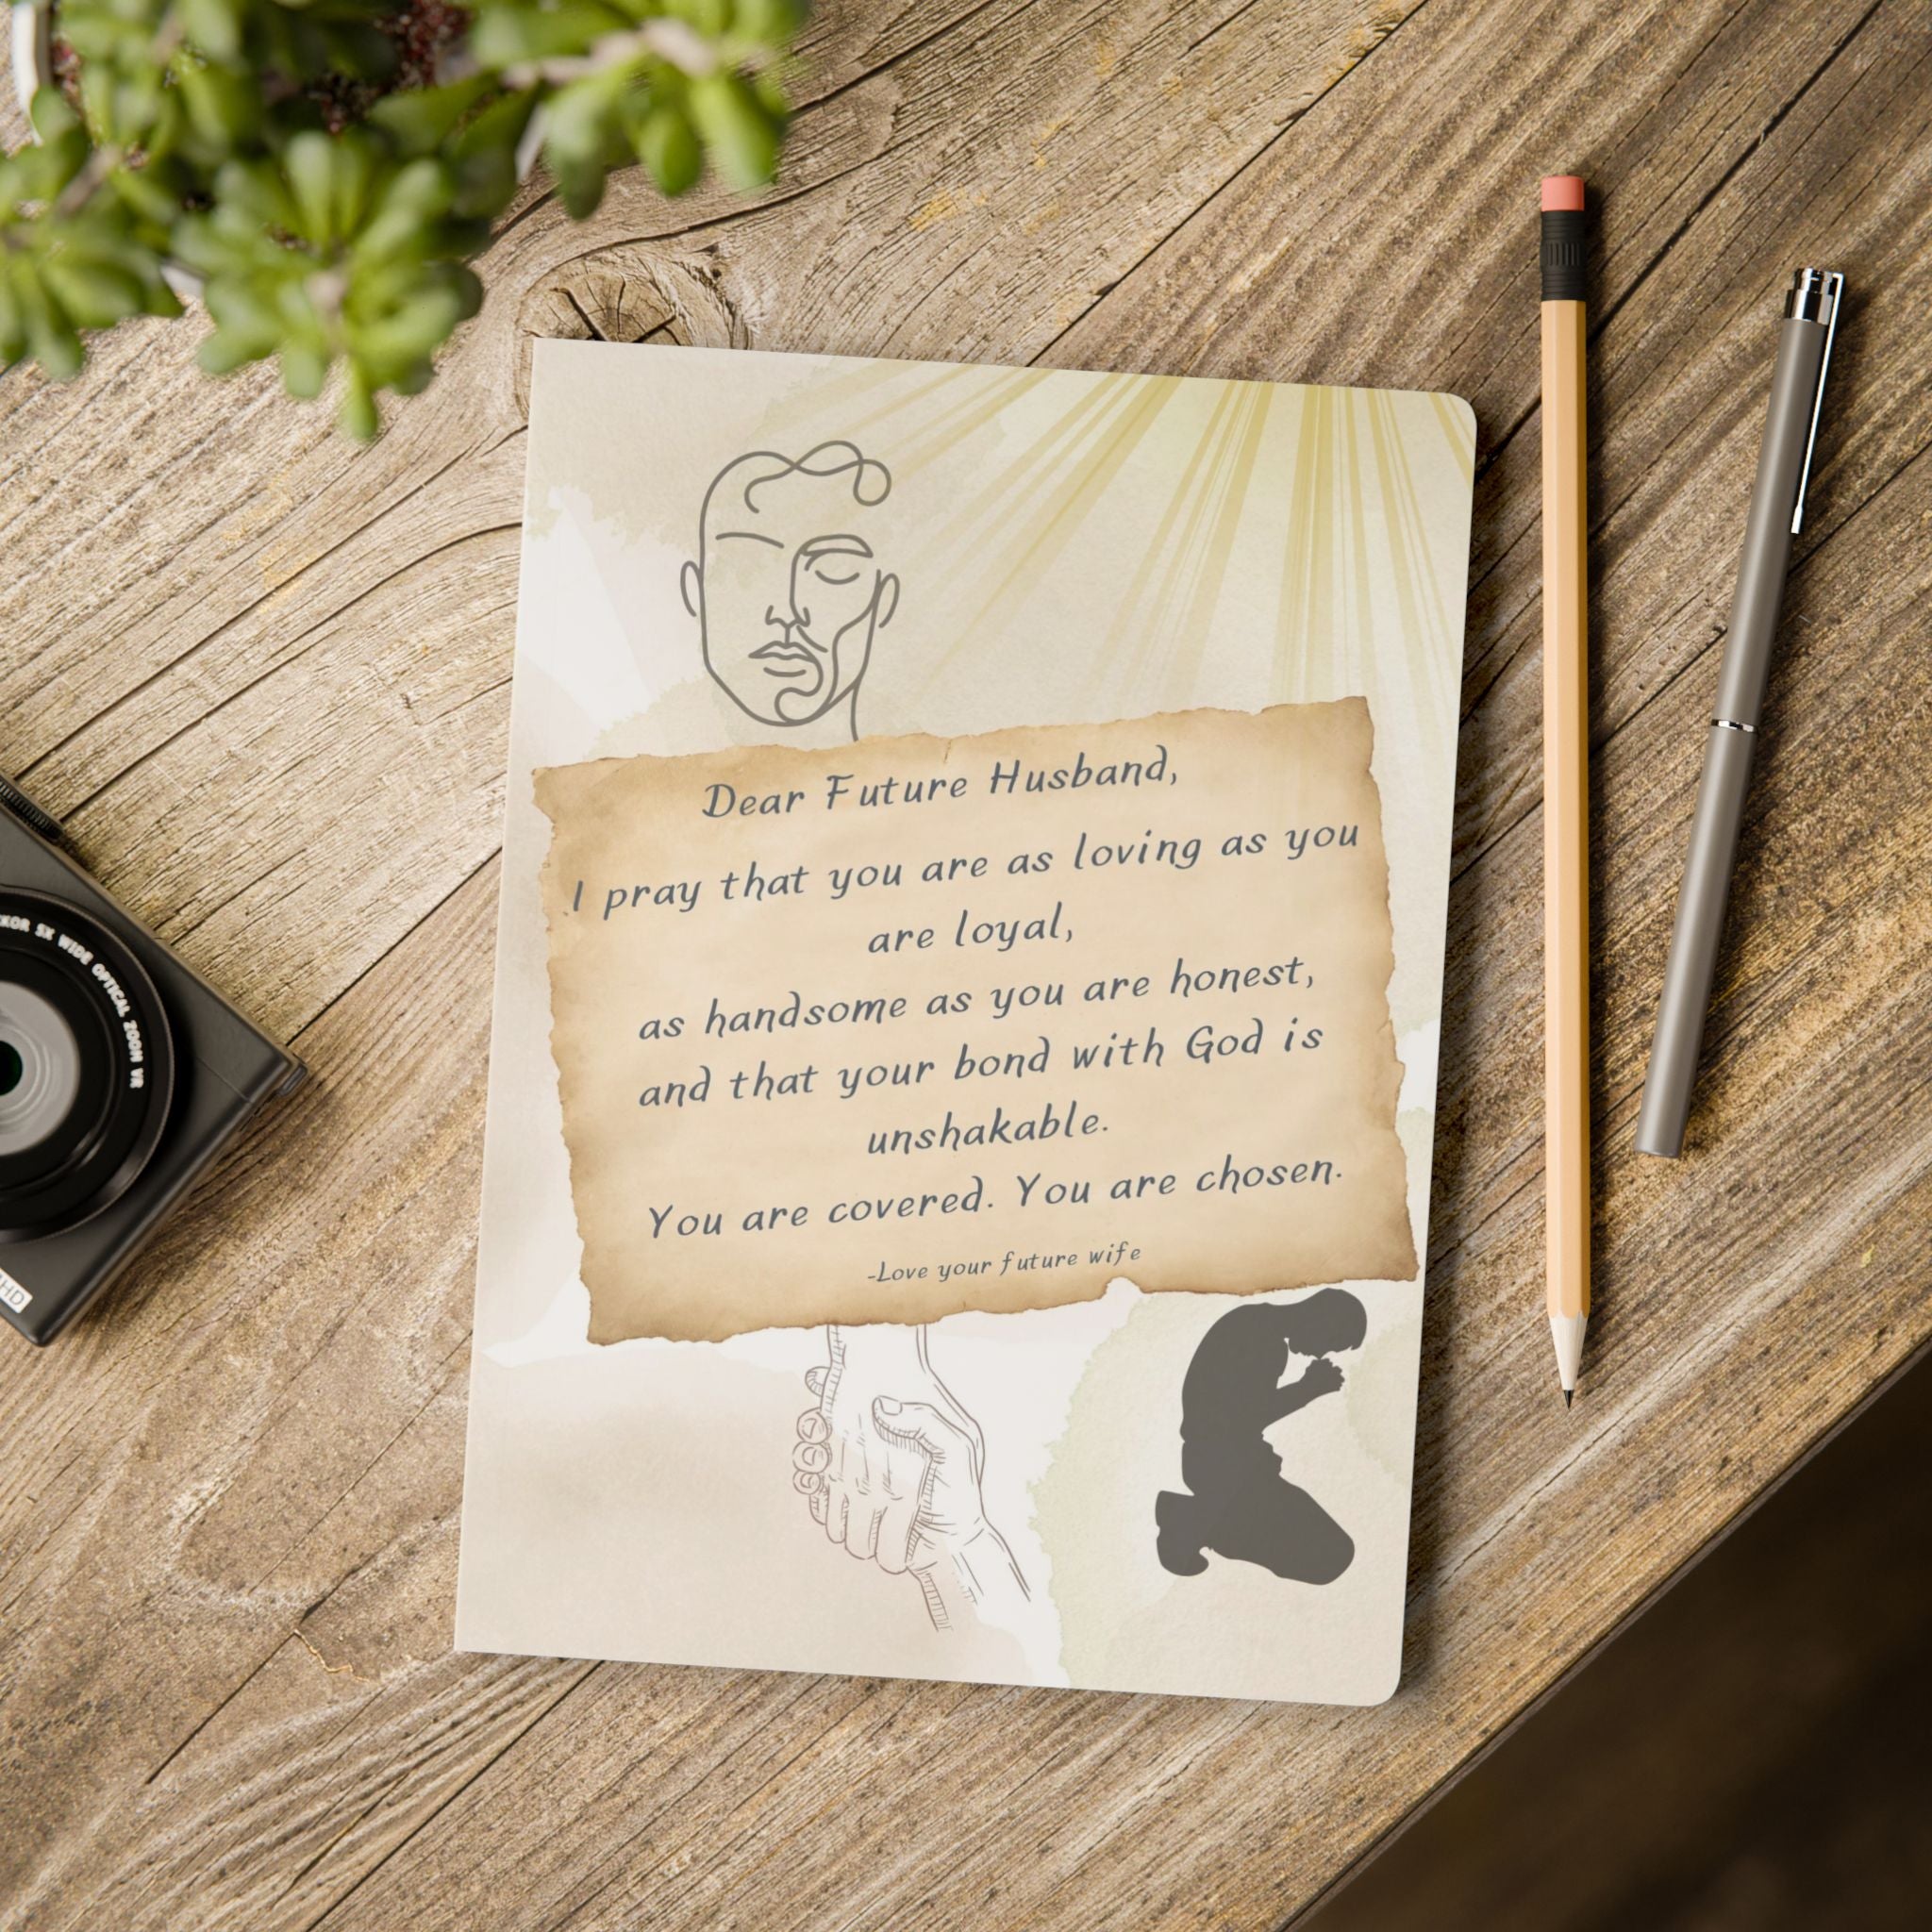 Dear Future Husband,
I pray that you are as loving as you
are loyal,
as handsome as you are honest,
and that your bond with God is
unshakable.
You are covered. You are chosen.
-Love your future wife
KOR 5X WIDE OPTICAL ZOOM VR
HD